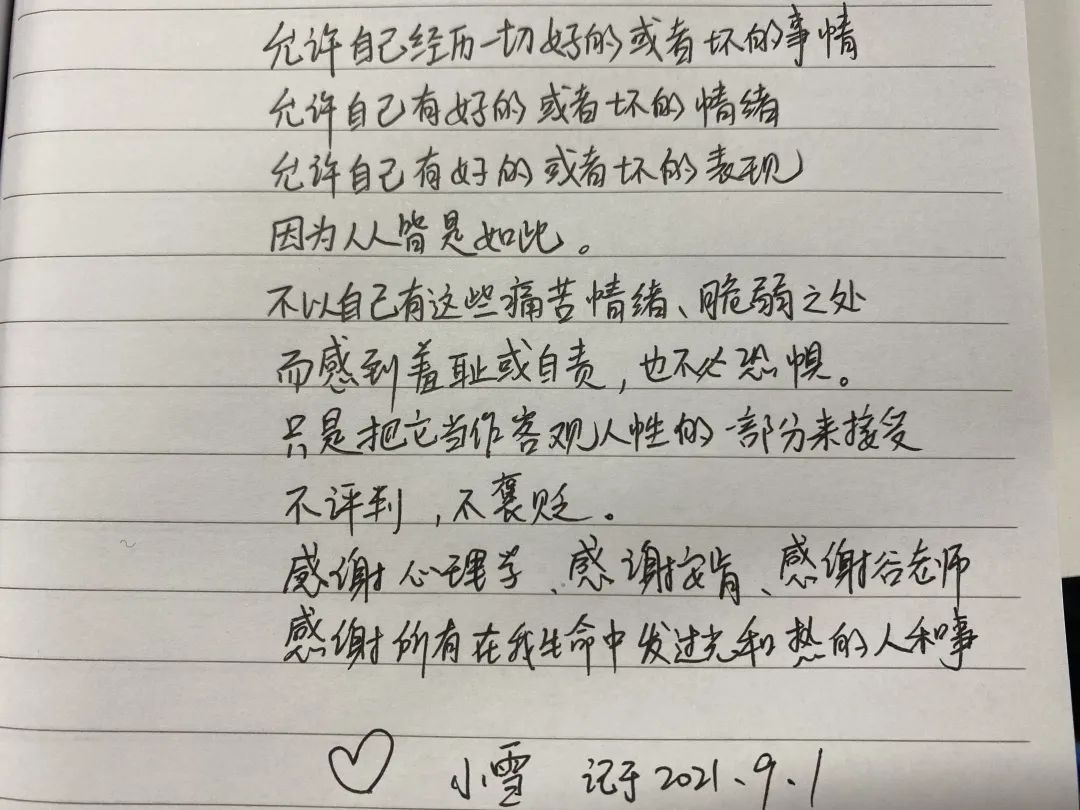 允许自己经历一切好的或者坏的事情
允许自己有好的或者坏的情绪
允许自己有好的或者坏的表现
因为人人皆是如此。
不以自己有这些痛苦情绪、脆弱之处
而感到羞耻或自责，也不必恐惧。
只是把它当作客观人性的一部分来接受
不评判，不褒贬。
感谢心理学、感谢安肯、感谢谷老师
感谢所有在我生命中发过光和热的人和事
♡ 小雪 记于2021、9、1